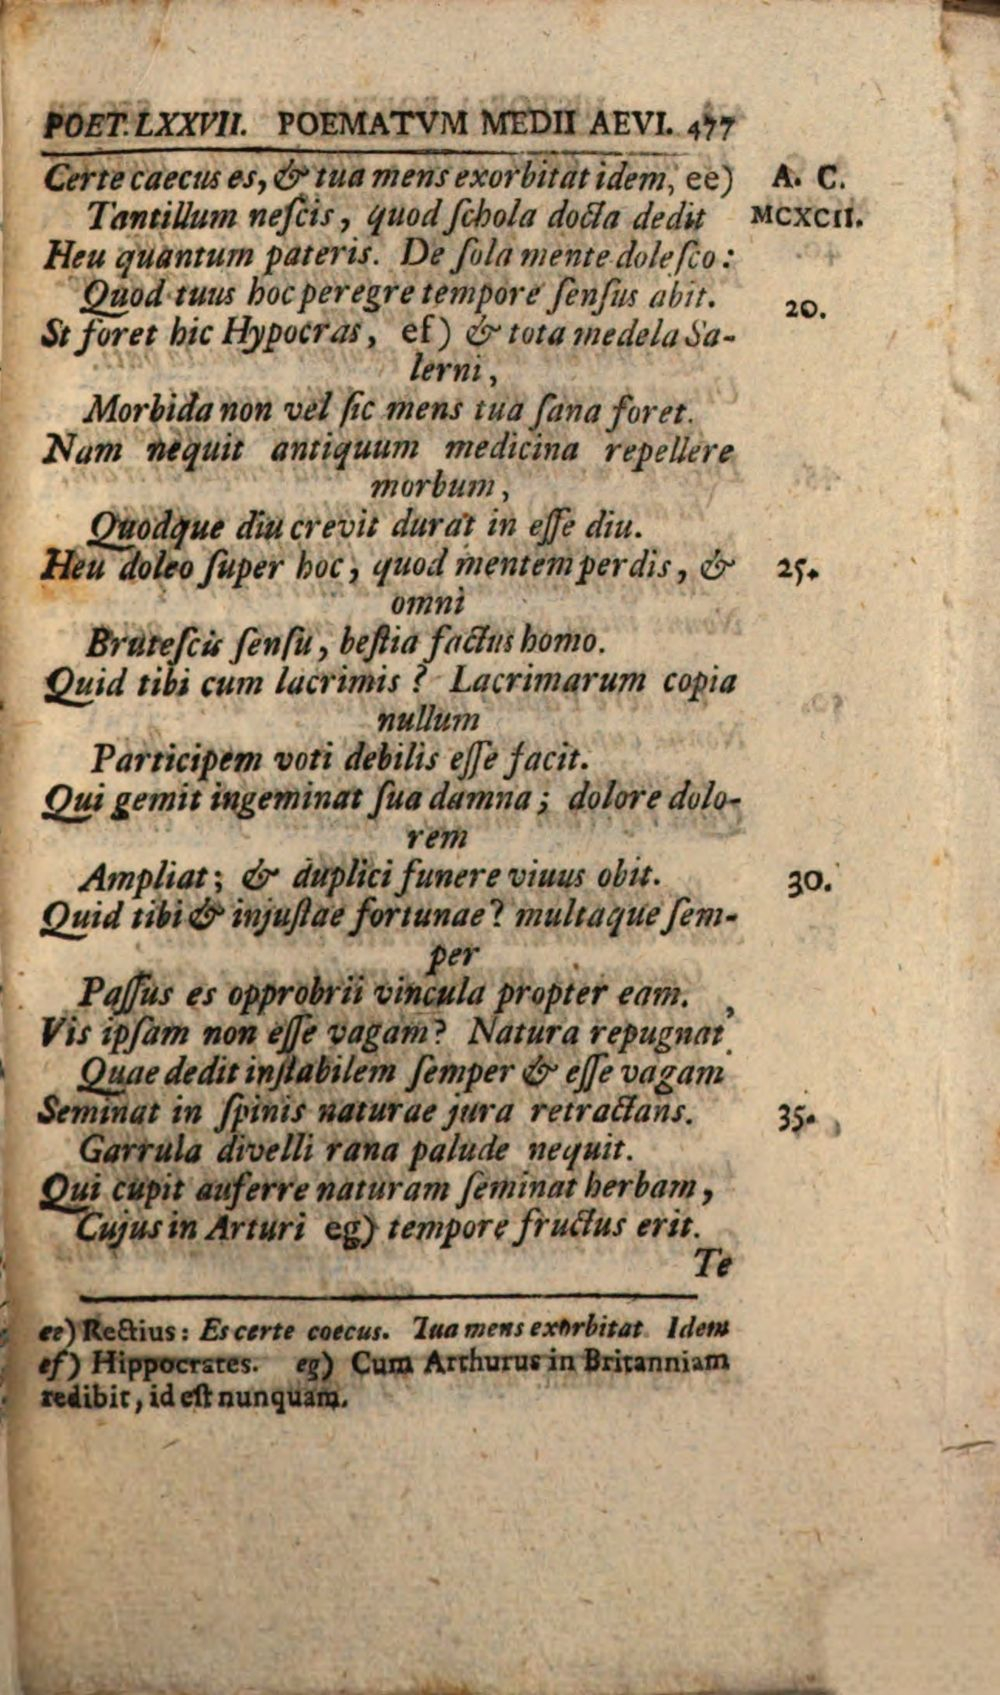 POET. LXXVII. POEMATVM MEDII AEVI. 477
Certe caecus es, & tua mens exorbitat idem, ee) A. C.
Tantillum neſcis, quod ſchola docta dedit MCXCII.
Heu quantum pateris. De ſola mente doleſco:
Quod tuus hoc peregre tempore ſenſus abit. 20.
St foret hic Hypocras, ef) & tota medela Sa-
lerni,
Morbida non vel ſic mens tua ſana foret.
Nam nequit antiquum medicina repellere
morbum,
Quodque diu crevit durat in eſſe diu.
Heu doleo ſuper hoc, quod mentem perdis, & 25.
omni
Bruteſcis ſenſu, beſtia factus homo.
Quid tibi cum lacrimis? Lacrimarum copia
nullum
Participem voti debilis eſſe facit.
Qui gemit ingeminat ſua damna; dolore dolo-
rem
Ampliat; & duplici funere viuus obit. 30.
Quid tibi & injuſtae fortunae? multaque ſem-
per
Paſſus es opprobrii vincula propter eam.
Vis ipſam non eſſe vagam? Natura repugnat
Quae dedit inſtabilem ſemper & eſſe vagam
Seminat in ſpinis naturae jura retractans. 35.
Garrula divelli rana palude nequit.
Qui cupit auferre naturam ſeminat herbam,
Cujus in Arturi eg) tempore fructus erit.
Te
ee) Rectius: Es certe coecus. Tua mens exorbitat Idem
ef) Hippocrates. eg) Cum Arthurus in Britanniam
redibit, id eſt nunquam.